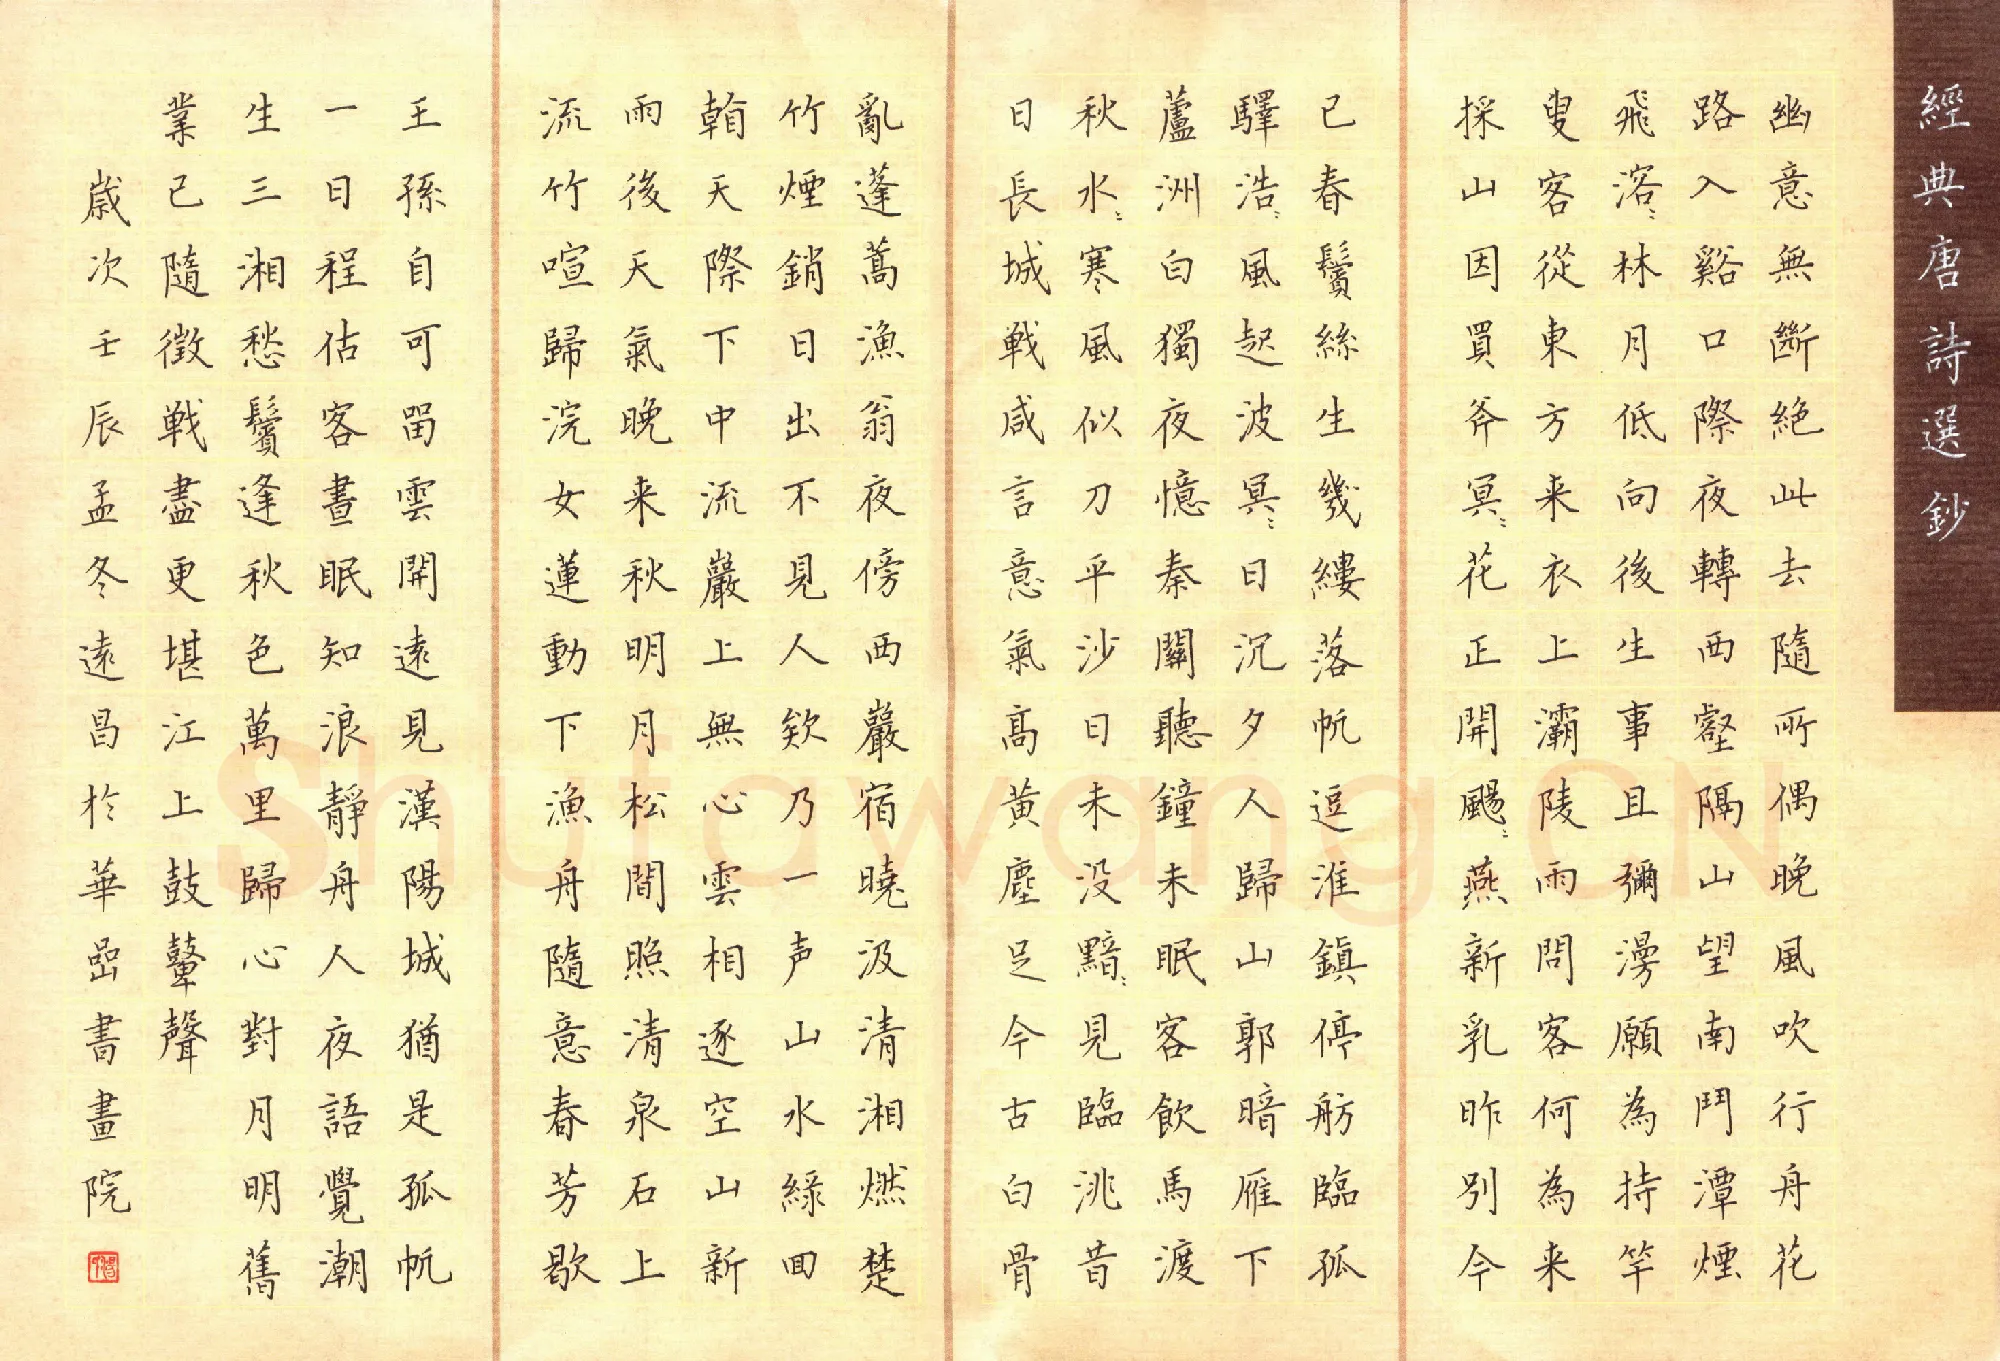 經典唐詩選鈔
幽意無斷絕此去隨所偶晚風吹行舟花
路入谿口際夜轉西壑隔山望南鬥潭煙
飛溶〻林月低向後生事且彌漫願為持竿
叟客從東方来衣上灞陵雨問客何為来
採山因買斧冥〻花正開颺〻燕新乳昨别今
已春鬢絲生幾縷落帆逗淮鎮停舫臨孤
驛浩〻風起波冥〻日沉夕人歸山郭暗雁下
蘆洲白獨夜憶秦關聽鐘未眠客飲馬渡
秋水〻寒風似刀平沙日未没黯〻見臨洮昔
日長城戰咸言意氣高黃塵足今古白骨
亂蓬蒿漁翁夜傍西巖宿曉汲清湘燃楚
竹煙銷日出不見人欸乃一声山水綠回
翰天際下中流巖上無心雲相逐空山新
雨後天氣晚来秋明月松間照清泉石上
流竹喧歸浣女蓮動下漁舟隨意春芳歇
王孫自可留雲開遠見漢陽城猶是孤帆
一日程估客晝眠知浪靜舟人夜語覺潮
生三湘愁鬢逢秋色萬里歸心對月明舊
業已隨徵戰盡更堪江上鼓鼙聲
歲次壬辰孟冬遠昌於華嵒書畫院
Shufawang.CN